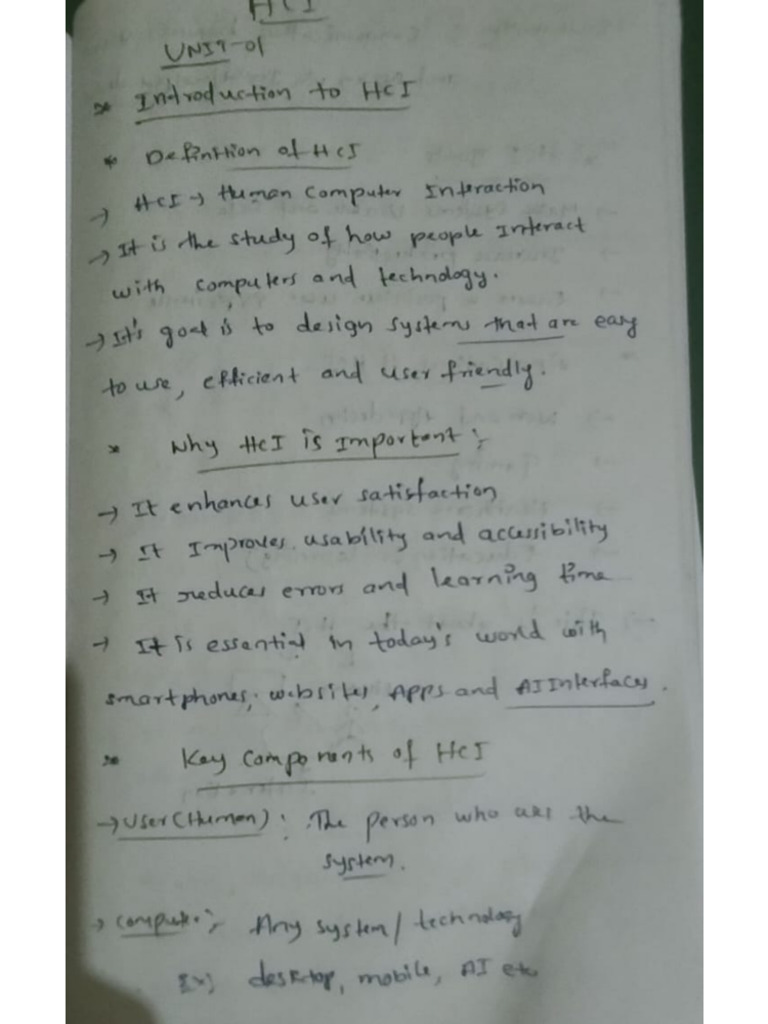 HCI
UNIT-01
* Introduction to HCI
* Definition of HCI
→ HCI → Human Computer Interaction
→ It is the study of how people Interact
with computers and technology.
→ It's goal is to design systems that are easy
to use, efficient and user friendly.
* Why HCI is Important :-
→ It enhances user satisfaction
→ It Improves usability and accessibility
→ It reduces errors and learning time
→ It is essential in today's world with
smartphones, websites, Apps and AI Interfaces.
* Key Components of HCI
→ User (Human) : The person who uses the
system.
→ Computer :- Any system / technology
Ex) desktop, mobile, AI etc